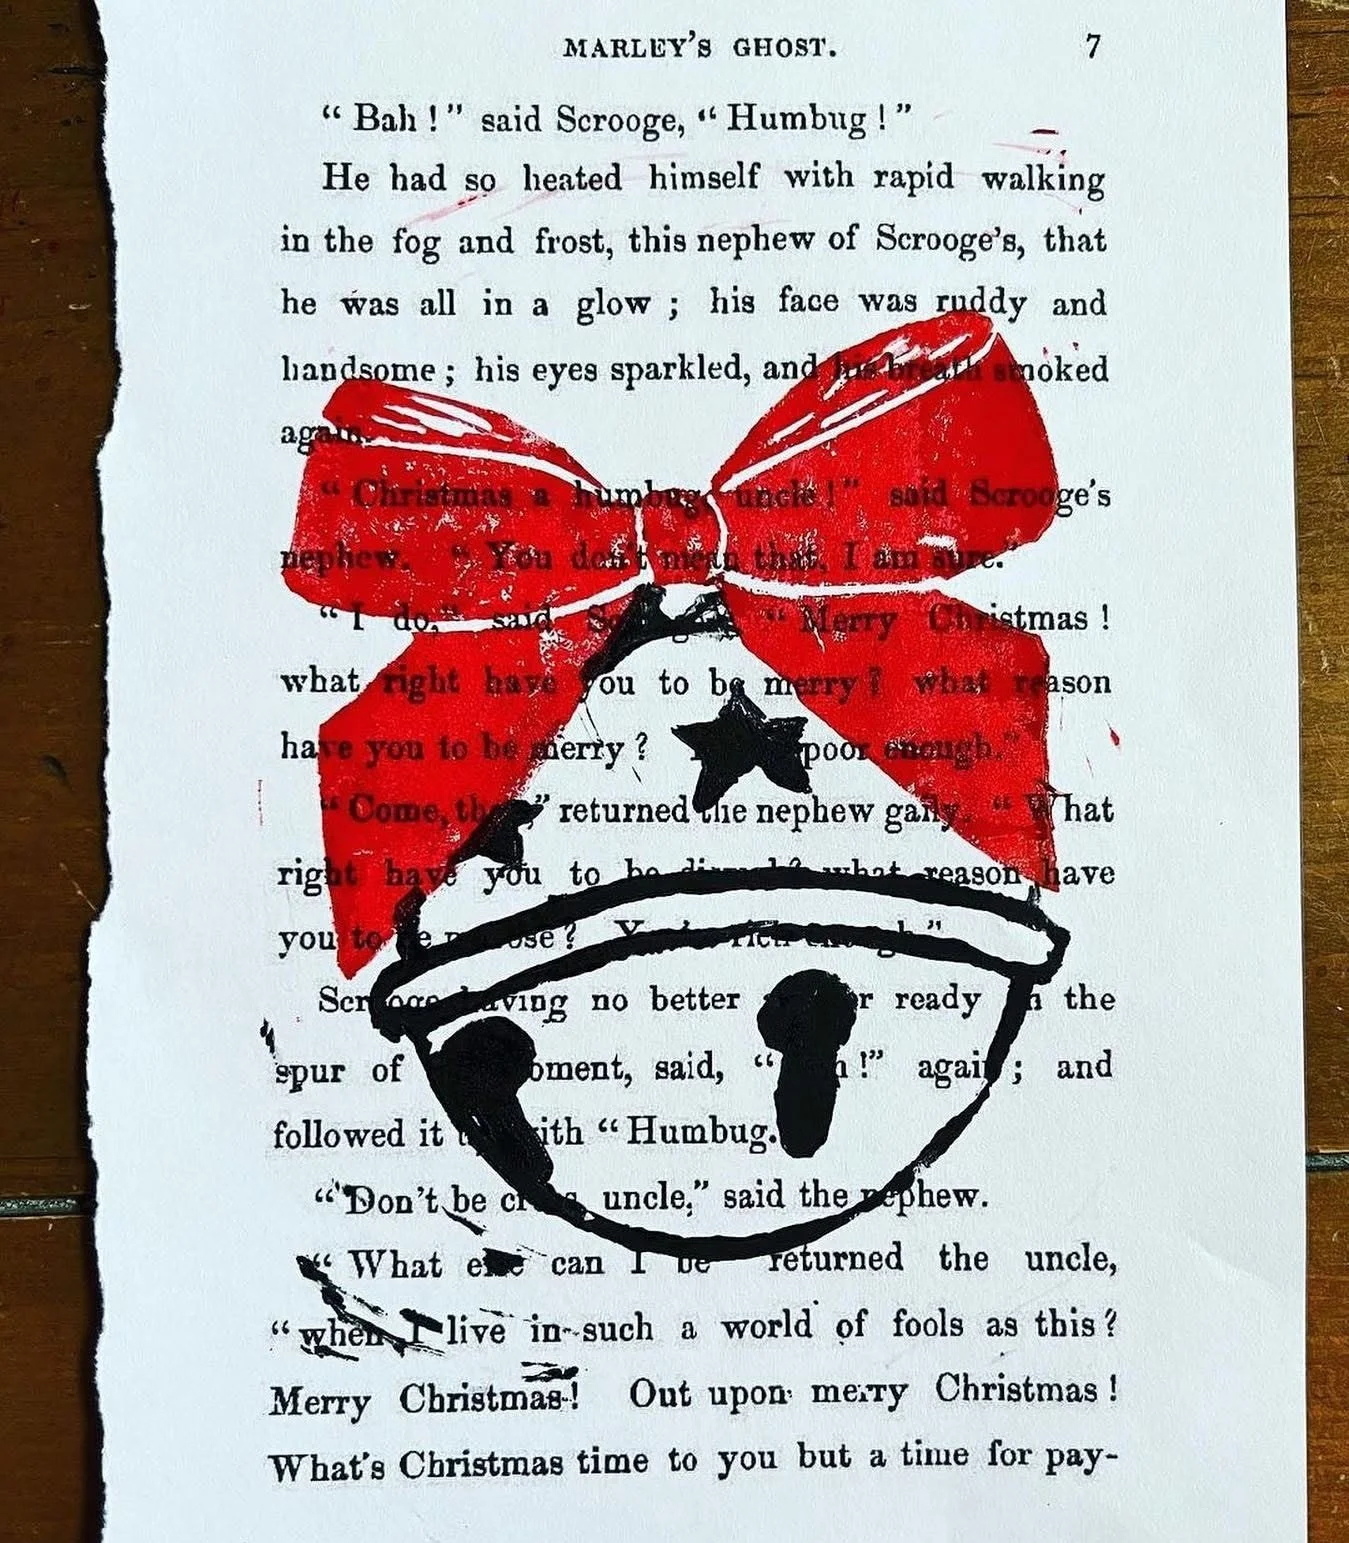 MARLEY'S GHOST. 7
"Bah!" said Scrooge, "Humbug!"
He had so heated himself with rapid walking
in the fog and frost, this nephew of Scrooge's, that
he was all in a glow; his face was ruddy and
handsome; his eyes sparkled, and his breath smoked
again.
"Christmas a humbug, uncle!" said Scrooge's
nephew. "You don't mean that, I am sure."
"I do," said "Merry Christmas!
what right have you to be merry? what reason
have you to be merry? poor enough."
"Come, " returned the nephew gaily. "What
right have you to be what reason have
you to be rich enough."
Scrooge having no better ready the
spur of moment, said, " !" again; and
followed it with "Humbug.
"Don't be uncle," said the nephew.
"What else can I be returned the uncle,
"when I live in such a world of fools as this?
Merry Christmas! Out upon merry Christmas!
What's Christmas time to you but a time for pay-